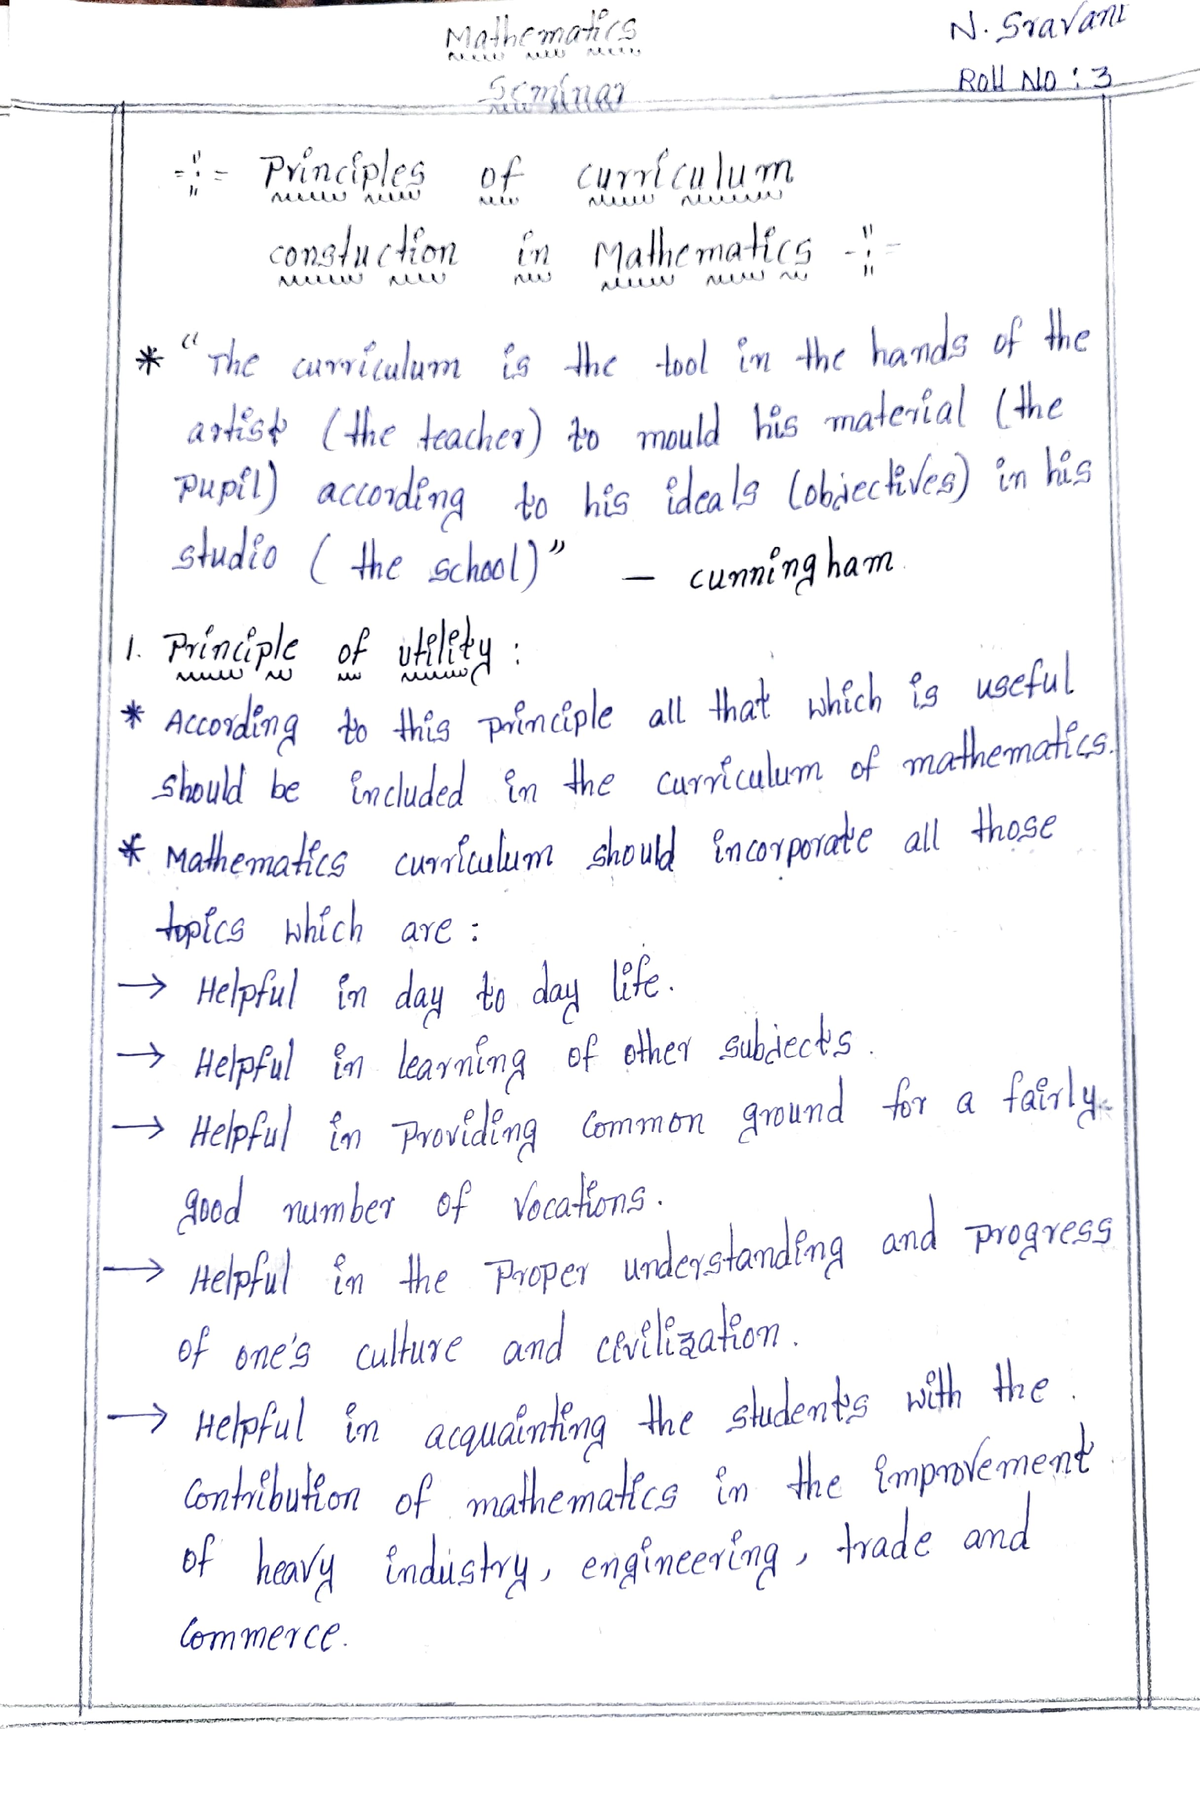 Mathematics
Seminar
N. Sravani
Roll No : 3
-:- Principles of curriculum
constuction in Mathematics -:-
* "The curriculum is the tool in the hands of the
artist (the teacher) to mould his material (the
pupil) according to his ideals (objectives) in his
studio ( the school)" - cunningham
1. Principle of utility :
* According to this principle all that which is useful
should be included in the curriculum of mathematics.
* Mathematics curriculum should incorporate all those
topics which are :
→ Helpful in day to day life.
→ Helpful in learning of other subjects.
→ Helpful in Providing common ground for a fairly
good number of vocations.
→ Helpful in the Proper understanding and progress
of one's culture and civilization.
→ Helpful in acquainting the students with the
contribution of mathematics in the improvement
of heavy industry, engineering, trade and
commerce.